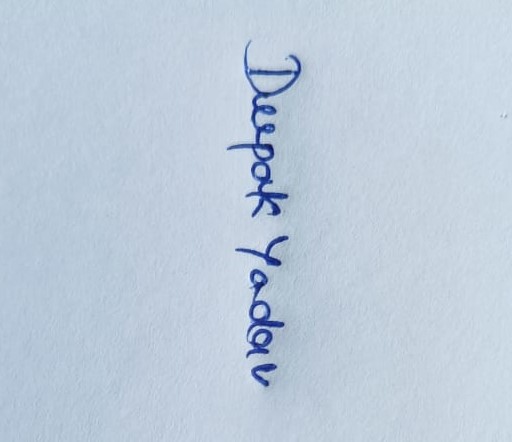 Deepak Yadav